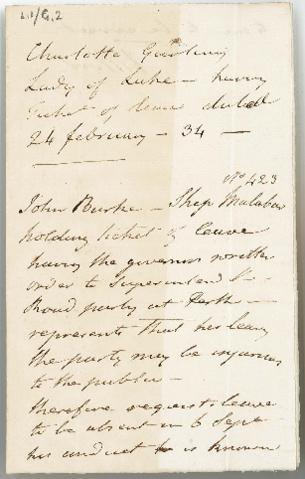 Charlotte
Lady of Luke – having
Ticket of leave dated
24 february – 34 –
No 423
John Burke – Ship Malabar
holding ticket of leave
having the governors written
order to Superintend
Road party at Perth –
represents that his leaving
the party may be injurious
to the public –
therefore requests leave
to be absent on 6 Sept
his conduct is known